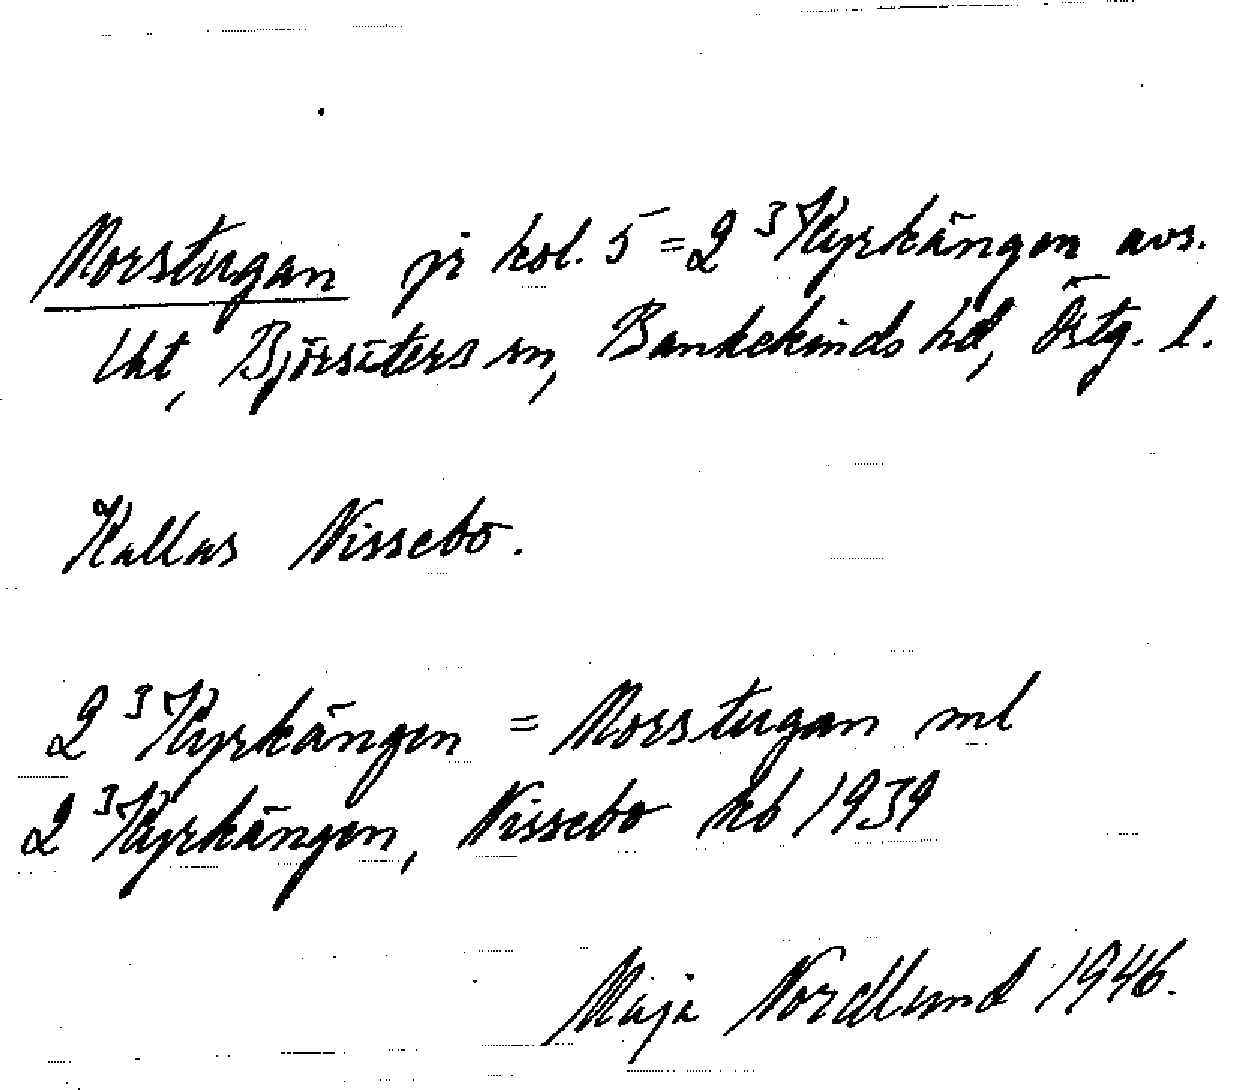 Morstugan på kol. 5 = 2³ Kyrkängen avs.
lht, Björsäters sn, Bankekinds hd, Östg. l.
Kallas Nissebo.
2³ Kyrkängen = Morstugan ml
2³ Kyrkängen, Nissebo kb 1939
Maja Nordlund 1946.